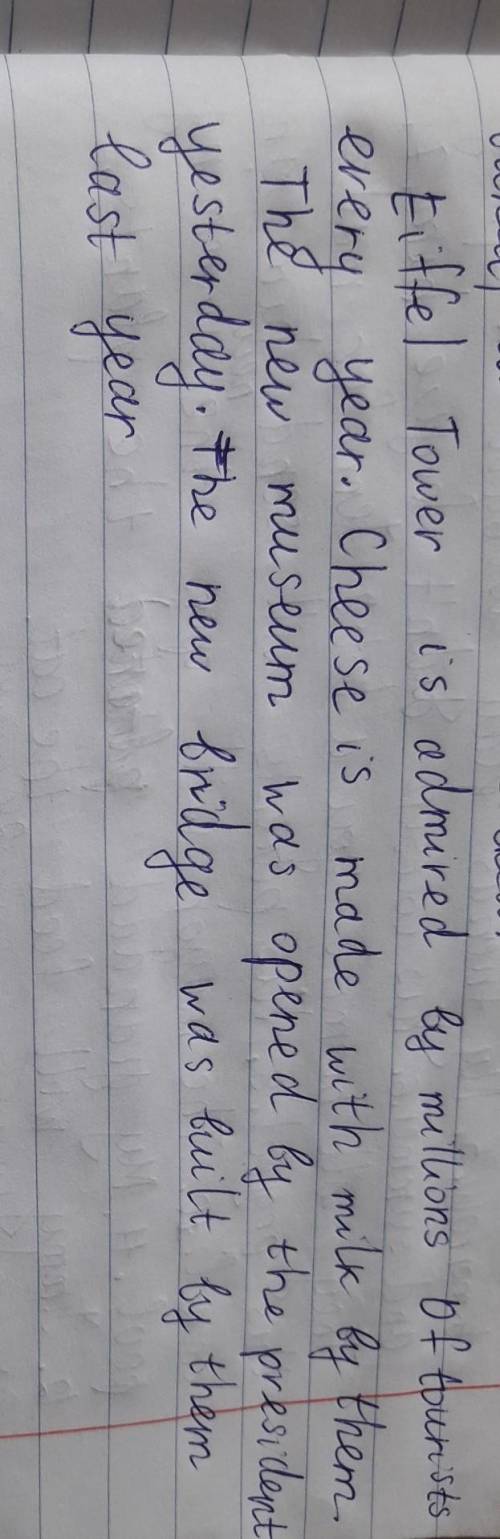 Eiffel Tower is admired by millions of tourists
every year. Cheese is made with milk by them.
The new museum was opened by the president
yesterday. The new bridge was built by them
last year